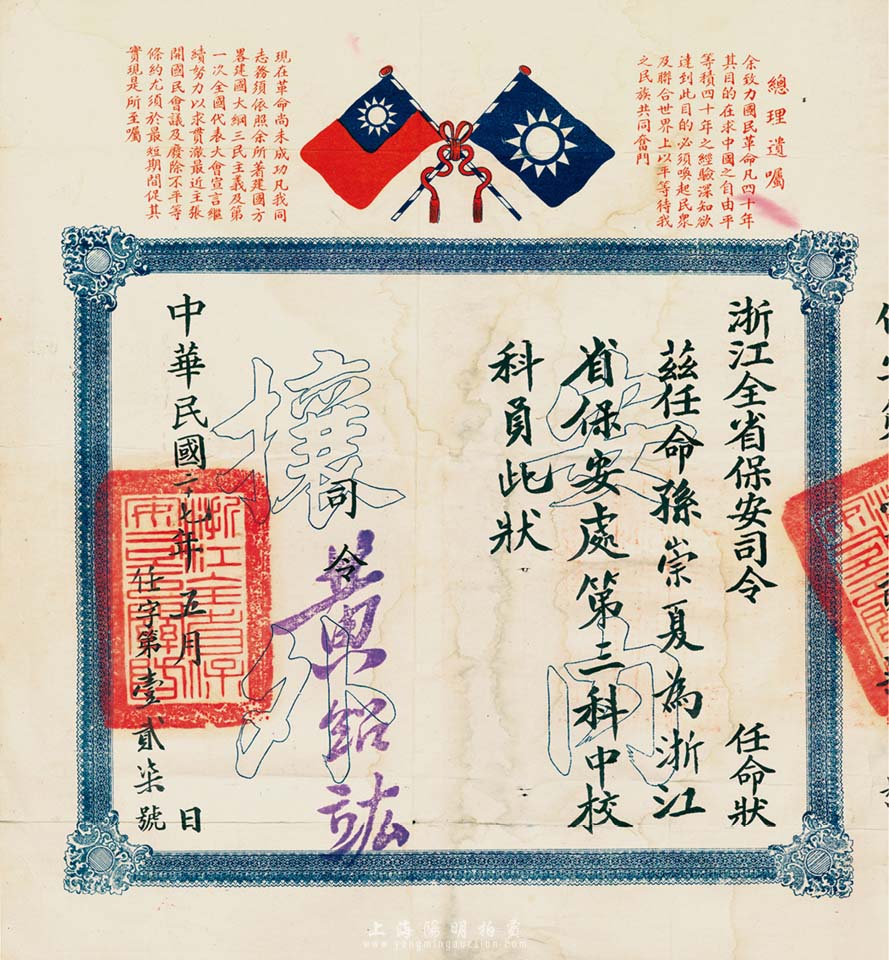 總理遺囑
余致力國民革命凡四十年
其目的在求中國之自由平
等積四十年之經驗深知欲
達到此目的必須喚起民眾
及聯合世界上以平等待我
之民族共同奮鬥
現在革命尚未成功凡我同
志務須依照余所著建國方
畧建國大綱三民主義及第
一次全國代表大會宣言繼
續努力以求貫澈最近主張
開國民會議及廢除不平等
條約尤須於最短期間促其
實現是所至囑
浙江全省保安司令 任命狀
茲任命孫崇夏為浙江
省保安處第三科中校
科員此狀
安內
攘外
司令 黃紹竑
中華民國二十七年五月 日
任字第壹貳柒號
浙江全省保安司令
上海陽明拍賣
www.yangmingauction.com